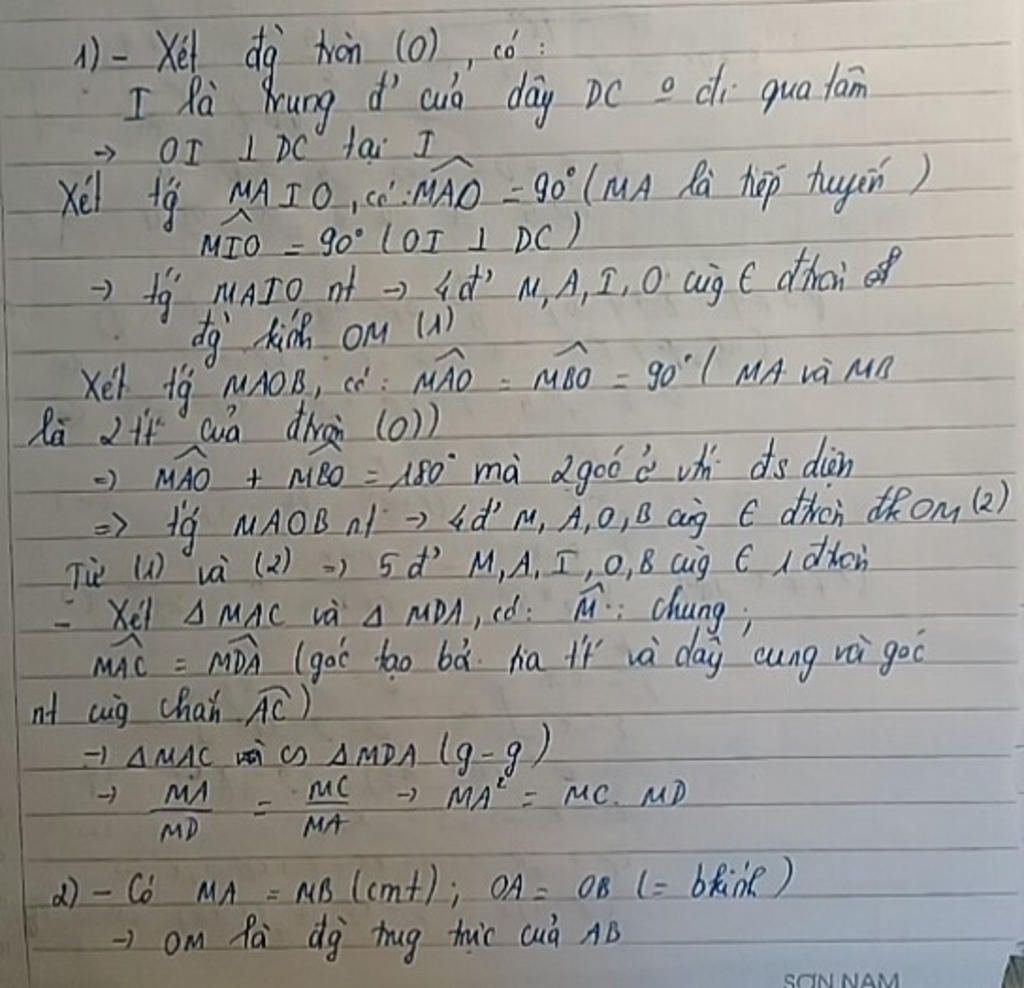 1) - Xét đg̀ tròn (O), có:
I là trung đ' của dây DC o đi qua tâm
→ OI ⊥ DC tại I
Xét tg MAIO, có: MAO = 90° (MA là tiếp tuyến)
MIO = 90° (OI ⊥ DC)
→ tg MAIO nt → 4 đ' M, A, I, O cùg ∈ đtròn
đg̀ kính OM (1)
Xét tg MAOB, có: MAO = MBO = 90° ( MA và MB
là 2 tt của đtròn (O))
=> MAO + MBO = 180° mà 2 góc ở vtrí đối diện
=> tg MAOB nt → 4 đ' M, A, O, B cùg ∈ đtròn đk OM (2)
Từ (1) và (2) => 5 đ' M, A, I, O, B cùg ∈ 1 đtròn
- Xét Δ MAC và Δ MDA, có: M: chung;
MAC = MDA (góc tạo bởi tia tt và dây cung và góc
nt cùg chắn AC)
→ Δ MAC ∽ Δ MDA (g-g)
→ MA/MD = MC/MA → MA² = MC. MD
2) - Có MA = MB (cmt); OA = OB (= bkính)
→ OM là đg̀ trug trực của AB
SƠN NAM